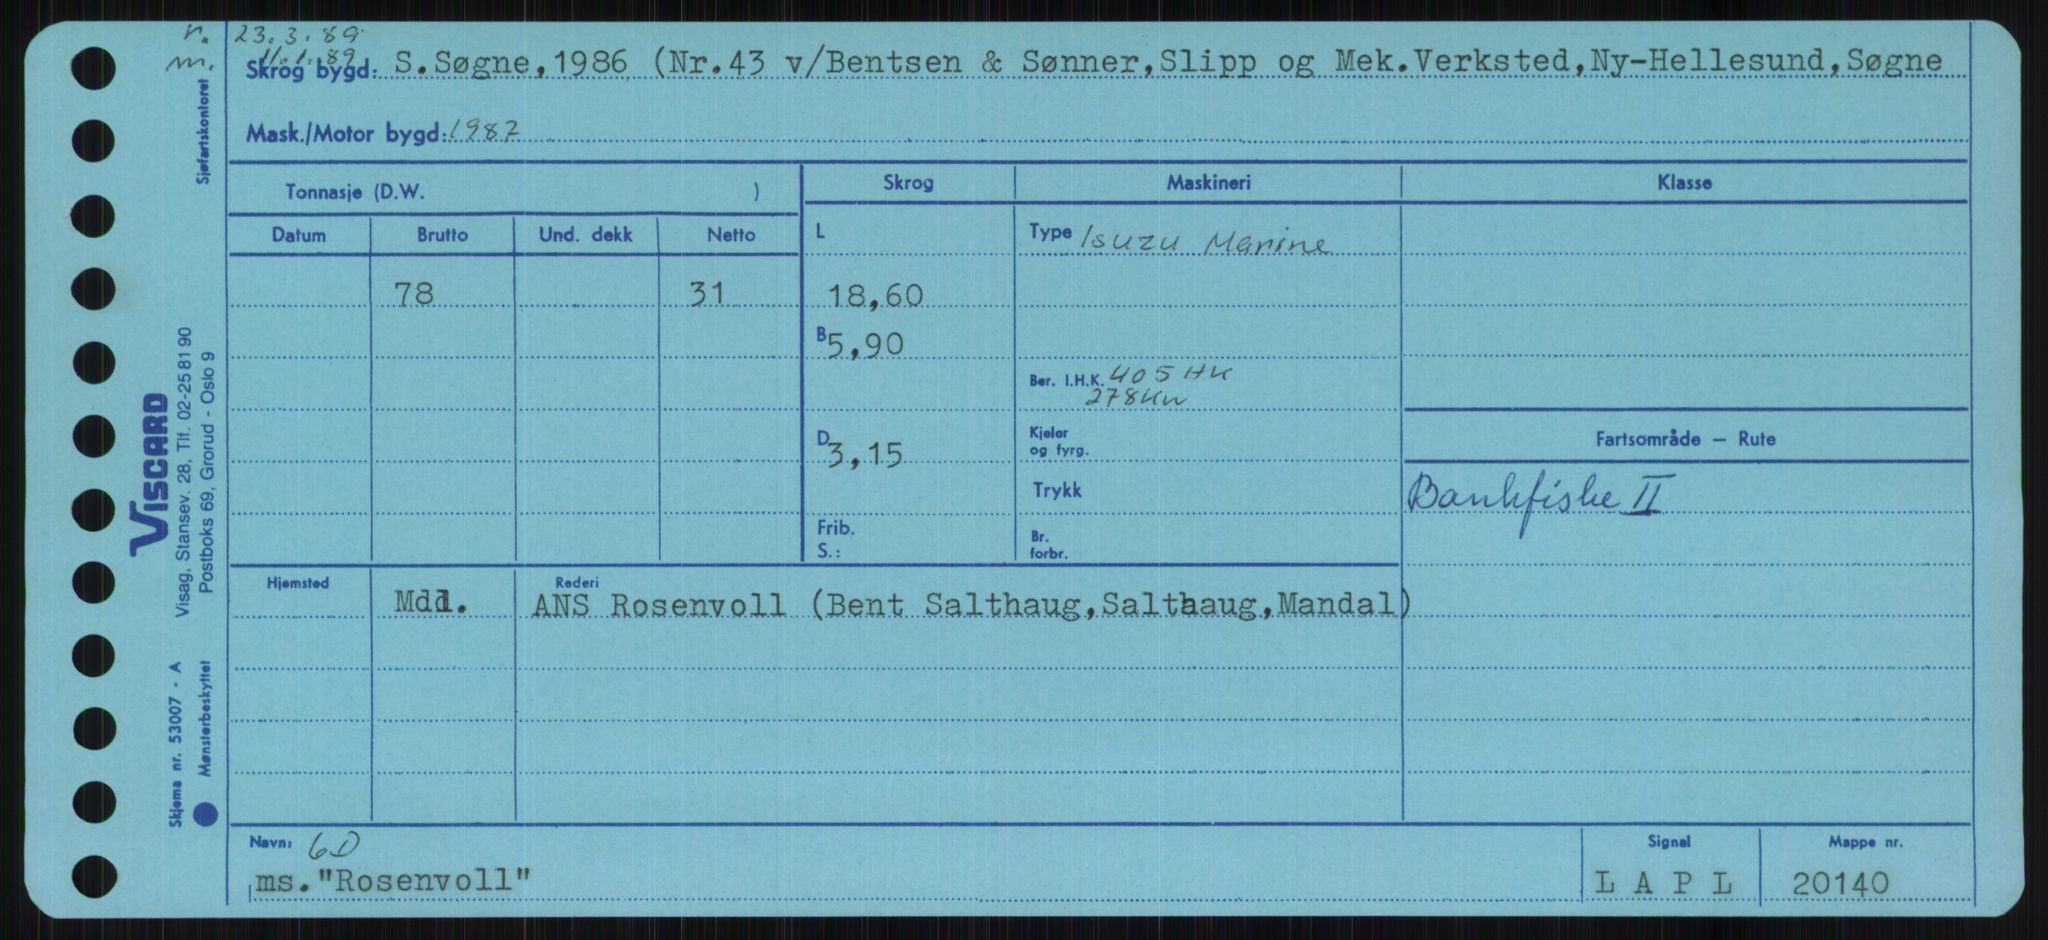 r. 23.3.89
m. 11.1.89
Skrog bygd: S.Søgne,1986 (Nr.43 v/Bentsen & Sønner,Slipp og Mek.Verksted,Ny-Hellesund,Søgne
Mask./Motor bygd: 1987
Sjøfartskontoret
Tonnasje (D.W. )
Skrog
Maskineri
Klasse
Datum
Brutto
Und. dekk
Netto
L
Type Isuzu Marine
78
31
18,60
B 5,90
Ber. I.H.K. 405 HK
278 Kw
D 3,15
Kjeler
og fyrg.
Fartsområde — Rute
Trykk
Bankfiske II
Frib.
S.:
Br.
forbr.
Hjemsted
Rederi
Mdl.
ANS Rosenvoll (Bent Salthaug,Salthaug,Mandal)
Navn: 6D
ms."Rosenvoll"
Signal
LAPL
Mappe nr.
20140
VISCARD
Visag, Stansev. 28, Tlf. 02-258190
Postboks 69, Grorud - Oslo 9
Skjema nr. 53007 - A
Mønsterbeskyttet